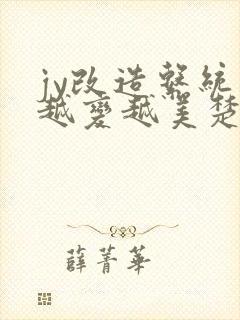 jy改造系統
越變越美楚
薛菁華